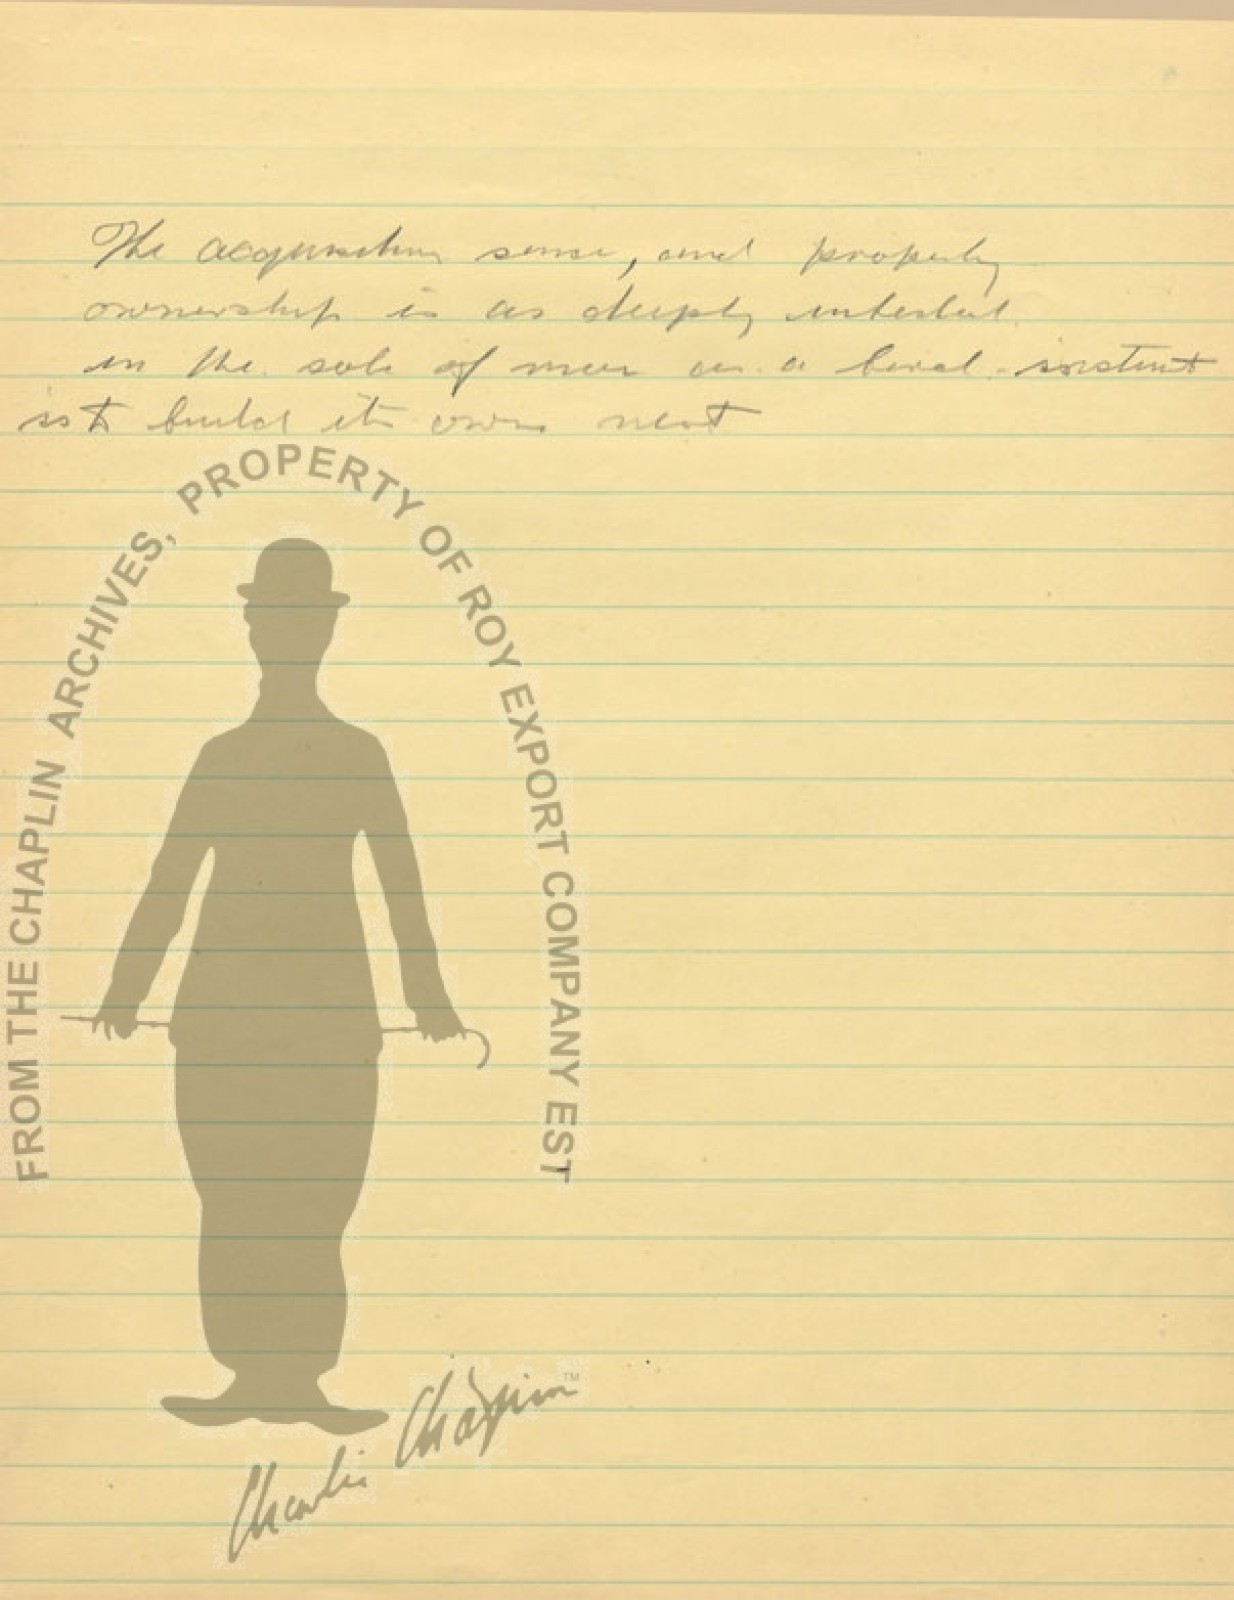 The acquisition sense, and property
ownership is as deeply
in the sole of man as a bird
is to build its own nest
FROM THE CHAPLIN ARCHIVES, PROPERTY OF ROY EXPORT COMPANY EST
Charlie Chaplin TM